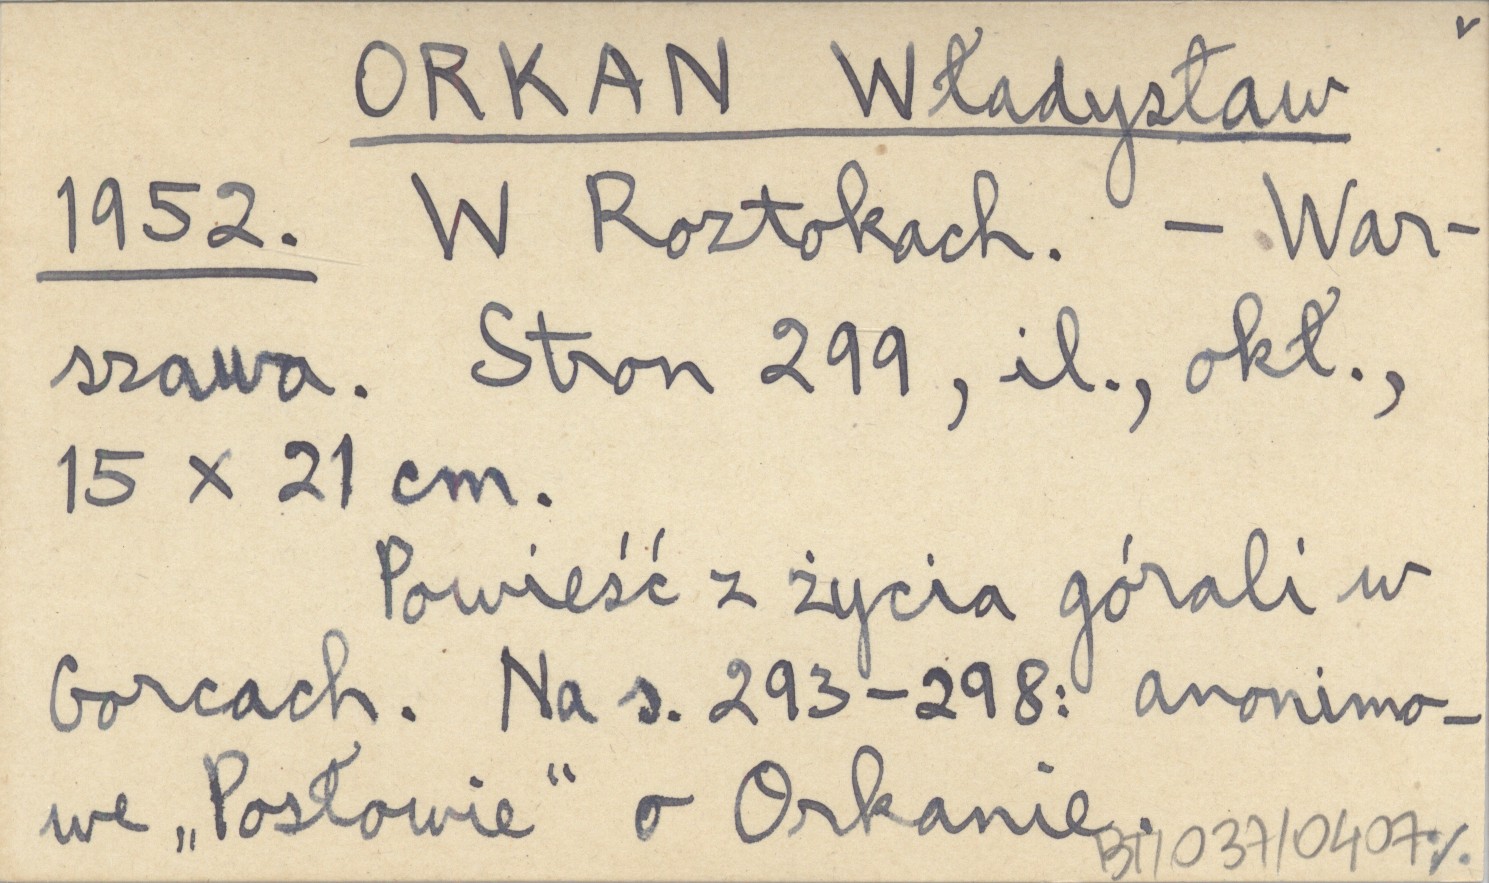 ORKAN Władysław
1952. W Roztokach. – War-
szawa. Stron 299, il., okł.,
15 x 21 cm.
Powieść z życia górali w
Gorcach. Na s. 293–298: anonimo-
we „Posłowie“ o Orkanie.
BT/037/0407 ./.